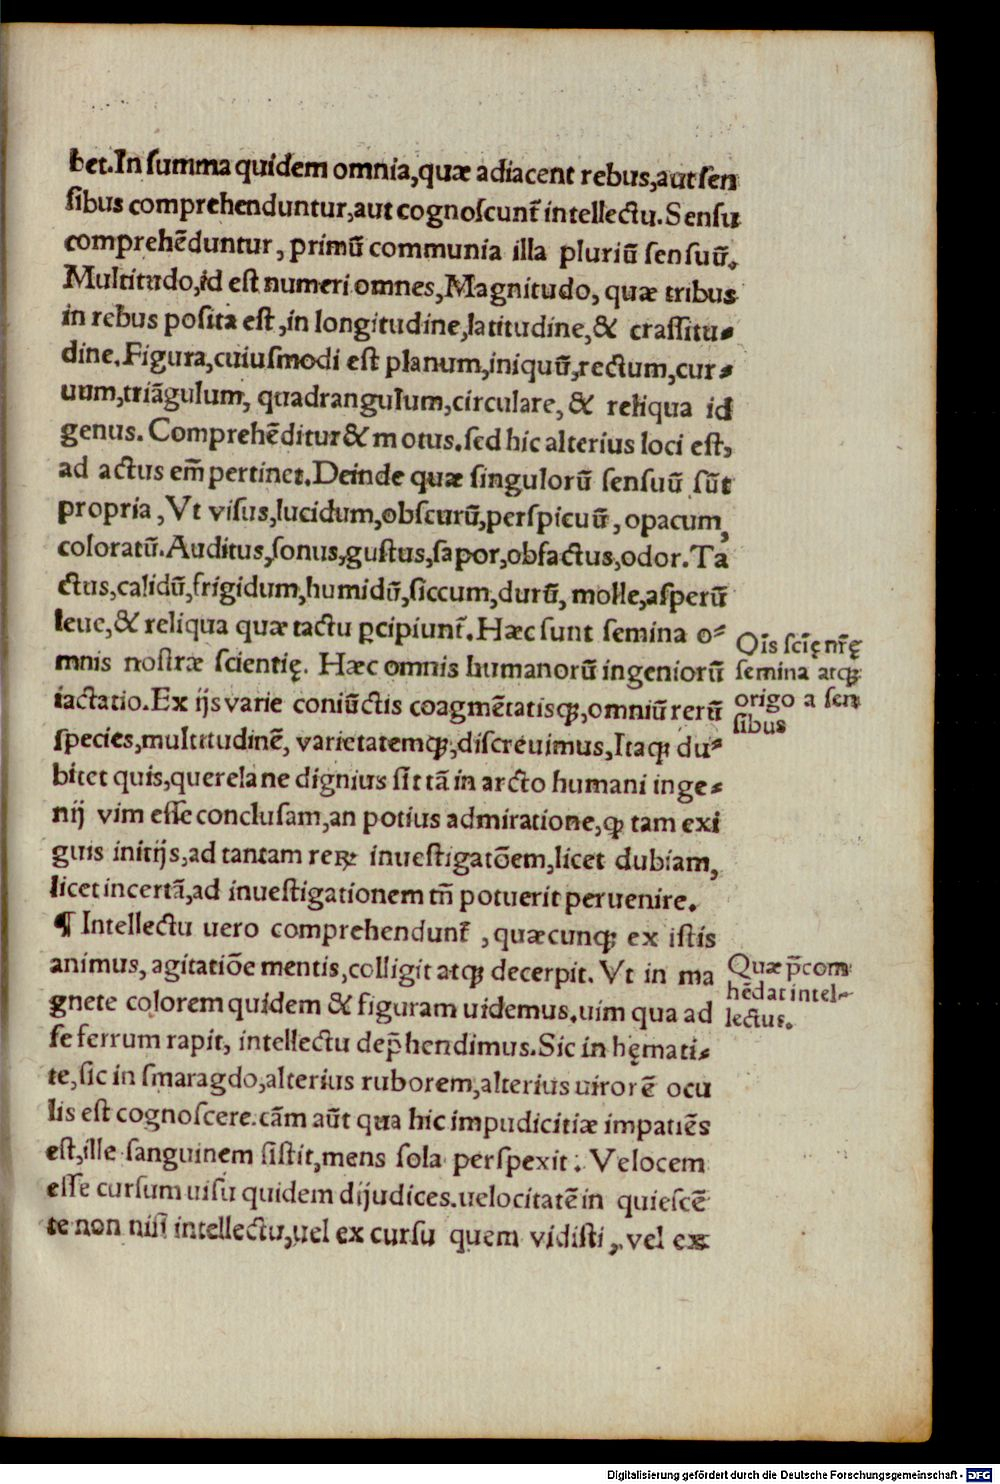 bet.In ſumma quidem omnia,quæ adiacent rebus,aut ſen
ſibus comprehenduntur,aut cognoſcunt̃ intellectu.Senſu
comprehẽduntur, primũ communia illa pluriũ ſenſuũ.
Multitudo,id eſt numeri omnes,Magnitudo, quæ tribus
in rebus poſita eſt,in longitudine,latitudine,& craſſitu⸗
dine.Figura,cuiuſmodi eſt planum,iniquũ,rectum,cur⸗
uum,triãgulum, quadrangulum,circulare, & reliqua id
genus. Comprehẽditur & motus.ſed hic alterius loci eſt,
ad actus em̃ pertinet.Deinde quæ ſingulorũ ſenſuũ ſũt
propria, Vt viſus,lucidum,obſcurũ,perſpicuũ, opacum,
coloratũ.Auditus,ſonus,guſtus,ſapor,obfactus,odor.Ta
ctus,calidũ,frigidum,humidũ,ſiccum,durũ, molle,aſperũ
leue,& reliqua quæ tactu ꝑcipiunt̃.Hæc ſunt ſemina o⸗
mnis noſtræ ſcientię. Hæc omnis humanorũ ingeniorũ
iactatio.Ex ijs varie coniũctis coagmẽtatisqꝫ,omniũ rerũ
ſpecies,multitudinẽ, varietatemqꝫ,diſcreuimus,Itaqꝫ du⸗
bitet quis,querelane dignius ſit tã in arcto humani inge⸗
nij vim eſſe concluſam,an potius admiratione,ꝙ tam exi
guis initijs,ad tantam reꝝ inueſtigatõem,licet dubiam,
licet incertã,ad inueſtigationem tñ potuerit peruenire.
¶ Intellectu uero comprehendunt̃ ,quæcunqꝫ ex iſtis
animus, agitatiõe mentis,colligit atqꝫ decerpit. Vt in ma
gnete colorem quidem & figuram uidemus.uim qua ad
ſe ferrum rapit, intellectu dep̃hendimus.Sic in hęmati⸗
te,ſic in ſmaragdo,alterius ruborem,alterius uirorẽ ocu
lis eſt cognoſcere.cãm aũt qua hic impudicitiæ impatiẽs
eſt,ille ſanguinem ſiſtit,mens ſola perſpexit. Velocem
eſſe curſum uiſu quidem dijudices.uelocitatẽ in quieſcẽ
te non niſi intellectu,uel ex curſu quem vidiſti , vel ex
Oĩs ſcię nr̃ę
ſemina atqꝫ
origo a ſen
ſibus
Quæ p̃com
hẽdat intel⸗
lectus.
Digitalisierung gefördert durch die Deutsche Forschungsgemeinschaft - DFG